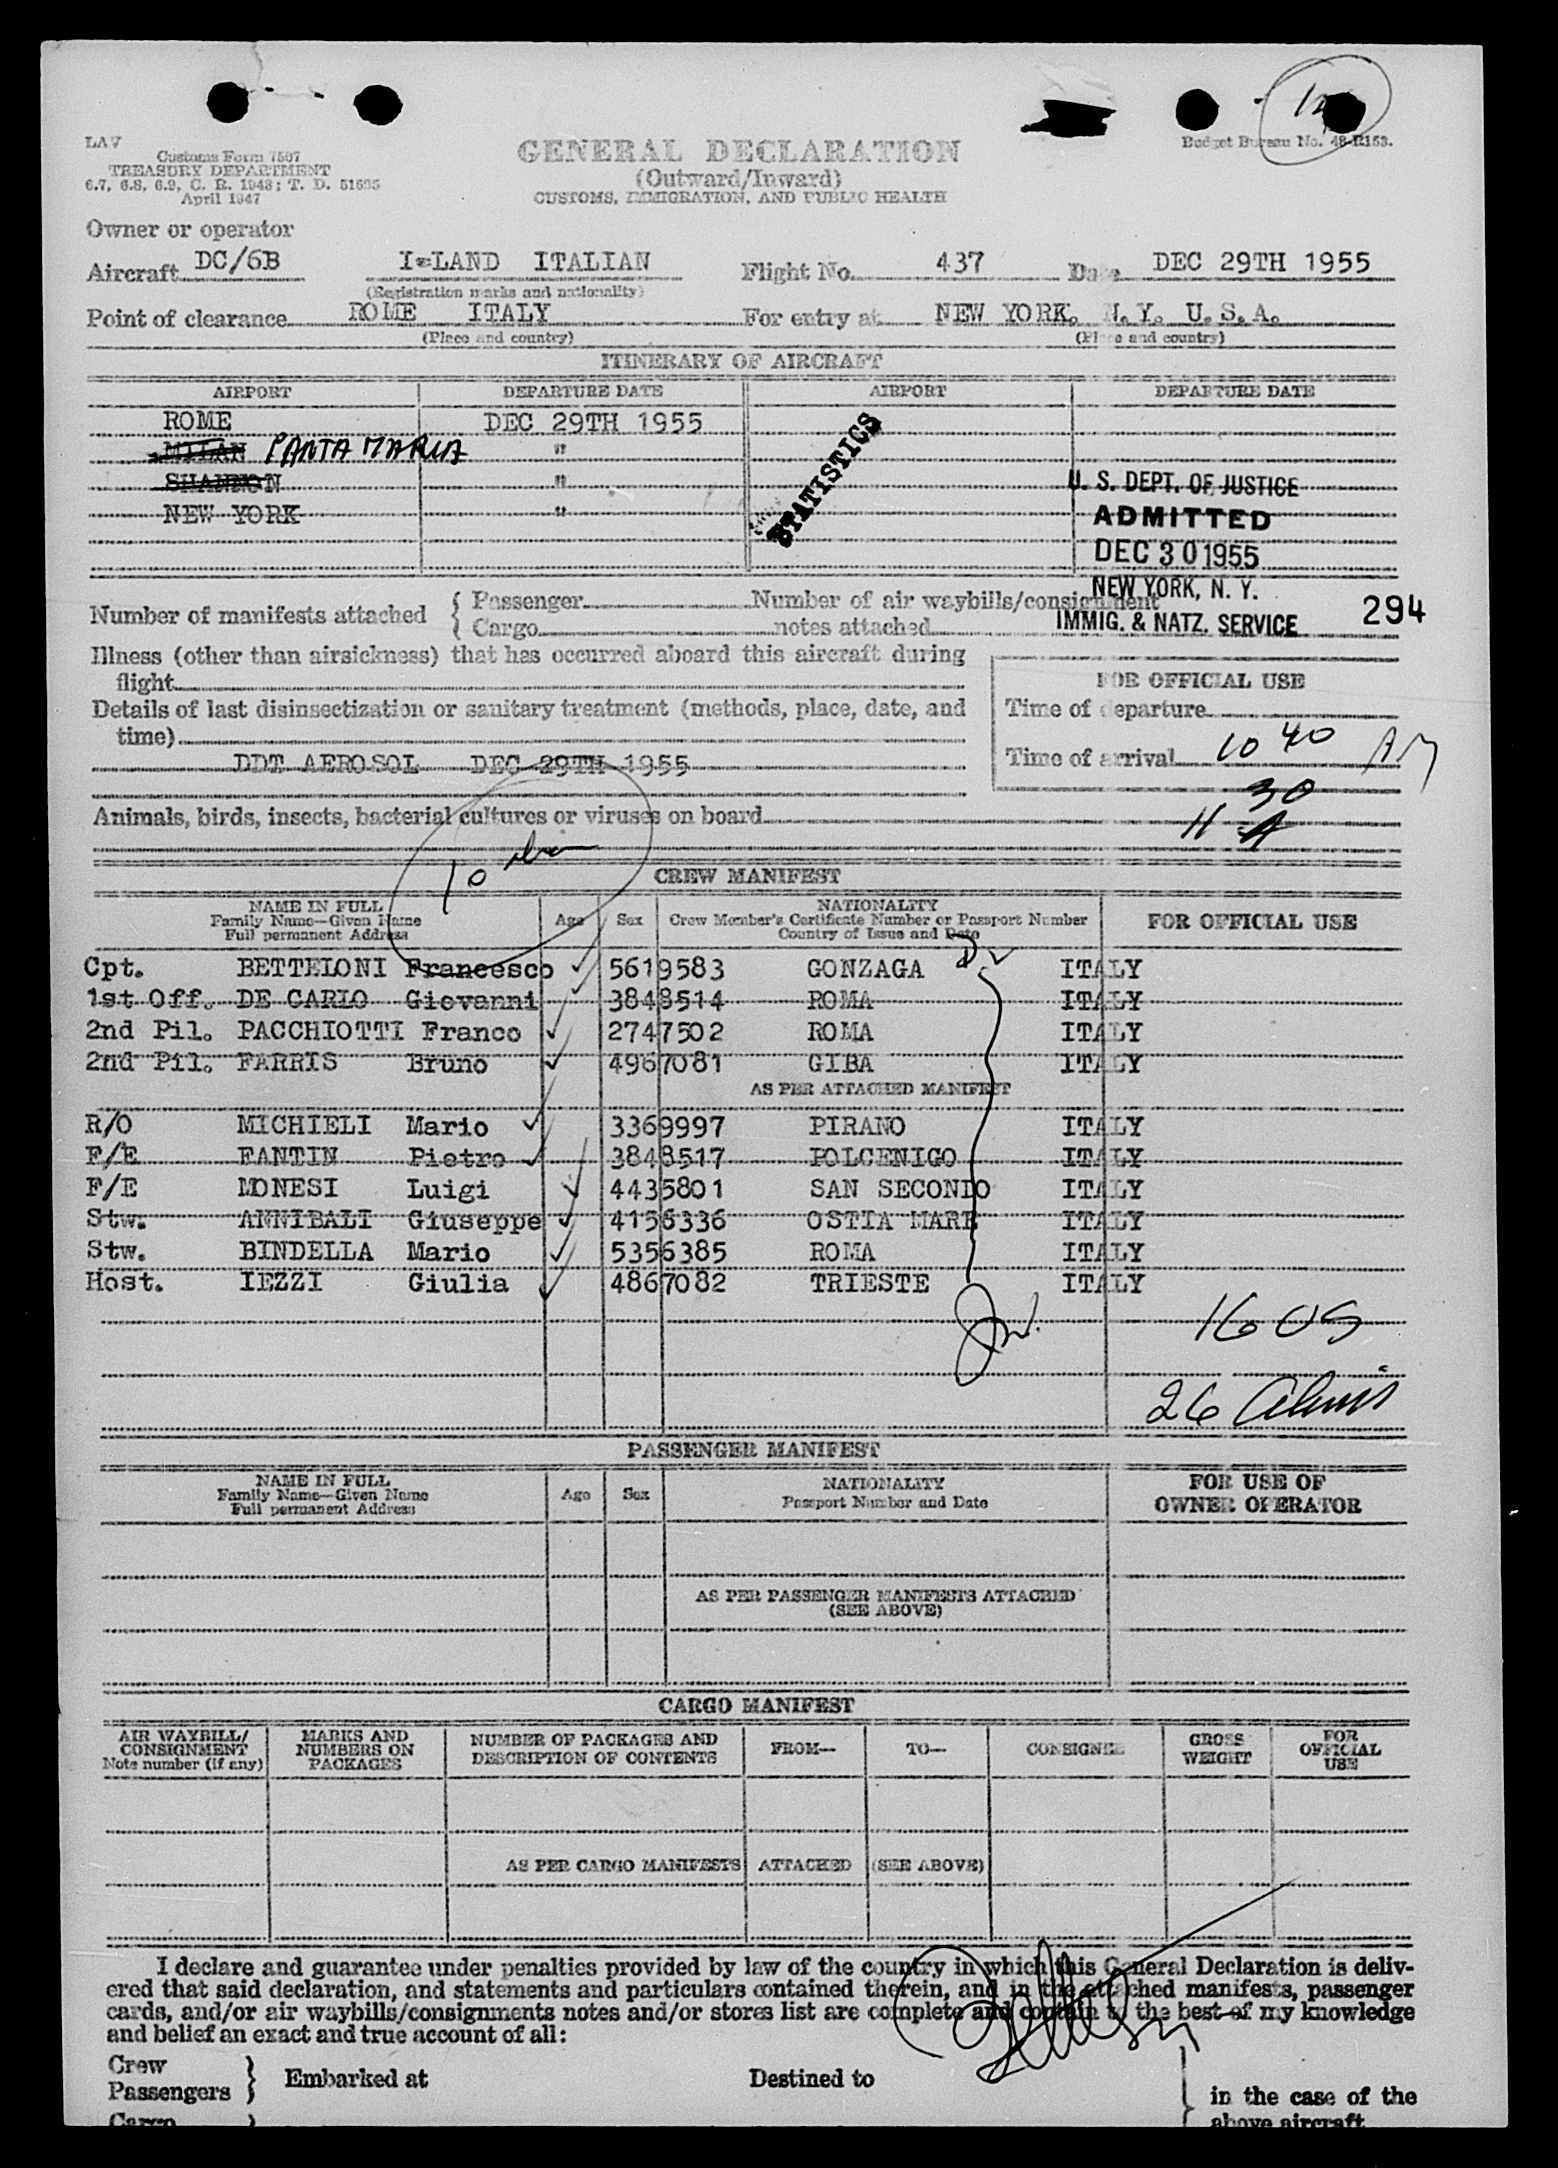 LAV
Customs Form 7507
TREASURY DEPARTMENT
6.7, 6.8, 6.9, C. R. 1943; T. D. 51635
April 1947
GENERAL DECLARATION
(Outward/Inward)
CUSTOMS, IMMIGRATION, AND PUBLIC HEALTH
Budget Bureau No. 48-R153.
Owner or operator
Aircraft DC/6B I-LAND ITALIAN Flight No. 437 Date DEC 29TH 1955
(Registration marks and nationality)
Point of clearance ROME ITALY For entry at NEW YORK. N.Y. U.S.A.
(Place and country) (Place and country)
ITINERARY OF AIRCRAFT
AIRPORT DEPARTURE DATE AIRPORT DEPARTURE DATE
ROME DEC 29TH 1955
MILAN SANTA MARIA "
SHANNON "
NEW YORK "
STATISTICS
U. S. DEPT. OF JUSTICE
ADMITTED
DEC 30 1955
NEW YORK, N. Y.
IMMIG. & NATZ. SERVICE
294
Number of manifests attached { Passenger Number of air waybills/consignment
Cargo notes attached
Illness (other than airsickness) that has occurred aboard this aircraft during
flight
Details of last disinsectization or sanitary treatment (methods, place, date, and
time)
DDT AEROSOL DEC 29TH 1955
FOR OFFICIAL USE
Time of departure
Time of arrival 10 40 AM
30
11 A
Animals, birds, insects, bacterial cultures or viruses on board
10
CREW MANIFEST
NAME IN FULL
Family Name—Given Name
Full permanent Address
Age Sex
NATIONALITY
Crew Member's Certificate Number or Passport Number
Country of Issue and Date
FOR OFFICIAL USE
Cpt. BETTELONI Francesco 5619583 GONZAGA ITALY
1st Off. DE CARLO Giovanni 3848514 ROMA ITALY
2nd Pil. PACCHIOTTI Franco 2747502 ROMA ITALY
2nd Pil. FARRIS Bruno 4967081 GIBA ITALY
AS PER ATTACHED MANIFEST
R/O MICHIELI Mario 3369997 PIRANO ITALY
F/E FANTIN Pietro 3848517 POLCENIGO ITALY
F/E MONESI Luigi 4435801 SAN SECONDO ITALY
Stw. ANNIBALI Giuseppe 4156336 OSTIA MARE ITALY
Stw. BINDELLA Mario 5356385 ROMA ITALY
Host. IEZZI Giulia 4867082 TRIESTE ITALY
16 US
26 Aliens
PASSENGER MANIFEST
NAME IN FULL
Family Name—Given Name
Full permanent Address
Age Sex
NATIONALITY
Passport Number and Date
FOR USE OF
OWNER OPERATOR
AS PER PASSENGER MANIFESTS ATTACHED
(SEE ABOVE)
CARGO MANIFEST
AIR WAYBILL/
CONSIGNMENT
Note number (if any)
MARKS AND
NUMBERS ON
PACKAGES
NUMBER OF PACKAGES AND
DESCRIPTION OF CONTENTS
FROM— TO— CONSIGNEE
GROSS
WEIGHT
FOR
OFFICIAL
USE
AS PER CARGO MANIFESTS ATTACHED (SEE ABOVE)
I declare and guarantee under penalties provided by law of the country in which this General Declaration is deliv-
ered that said declaration, and statements and particulars contained therein, and in the attached manifests, passenger
cards, and/or air waybills/consignments notes and/or stores list are complete and contain to the best of my knowledge
and belief an exact and true account of all:
Crew
Passengers } Embarked at Destined to } in the case of the
Cargo above aircraft